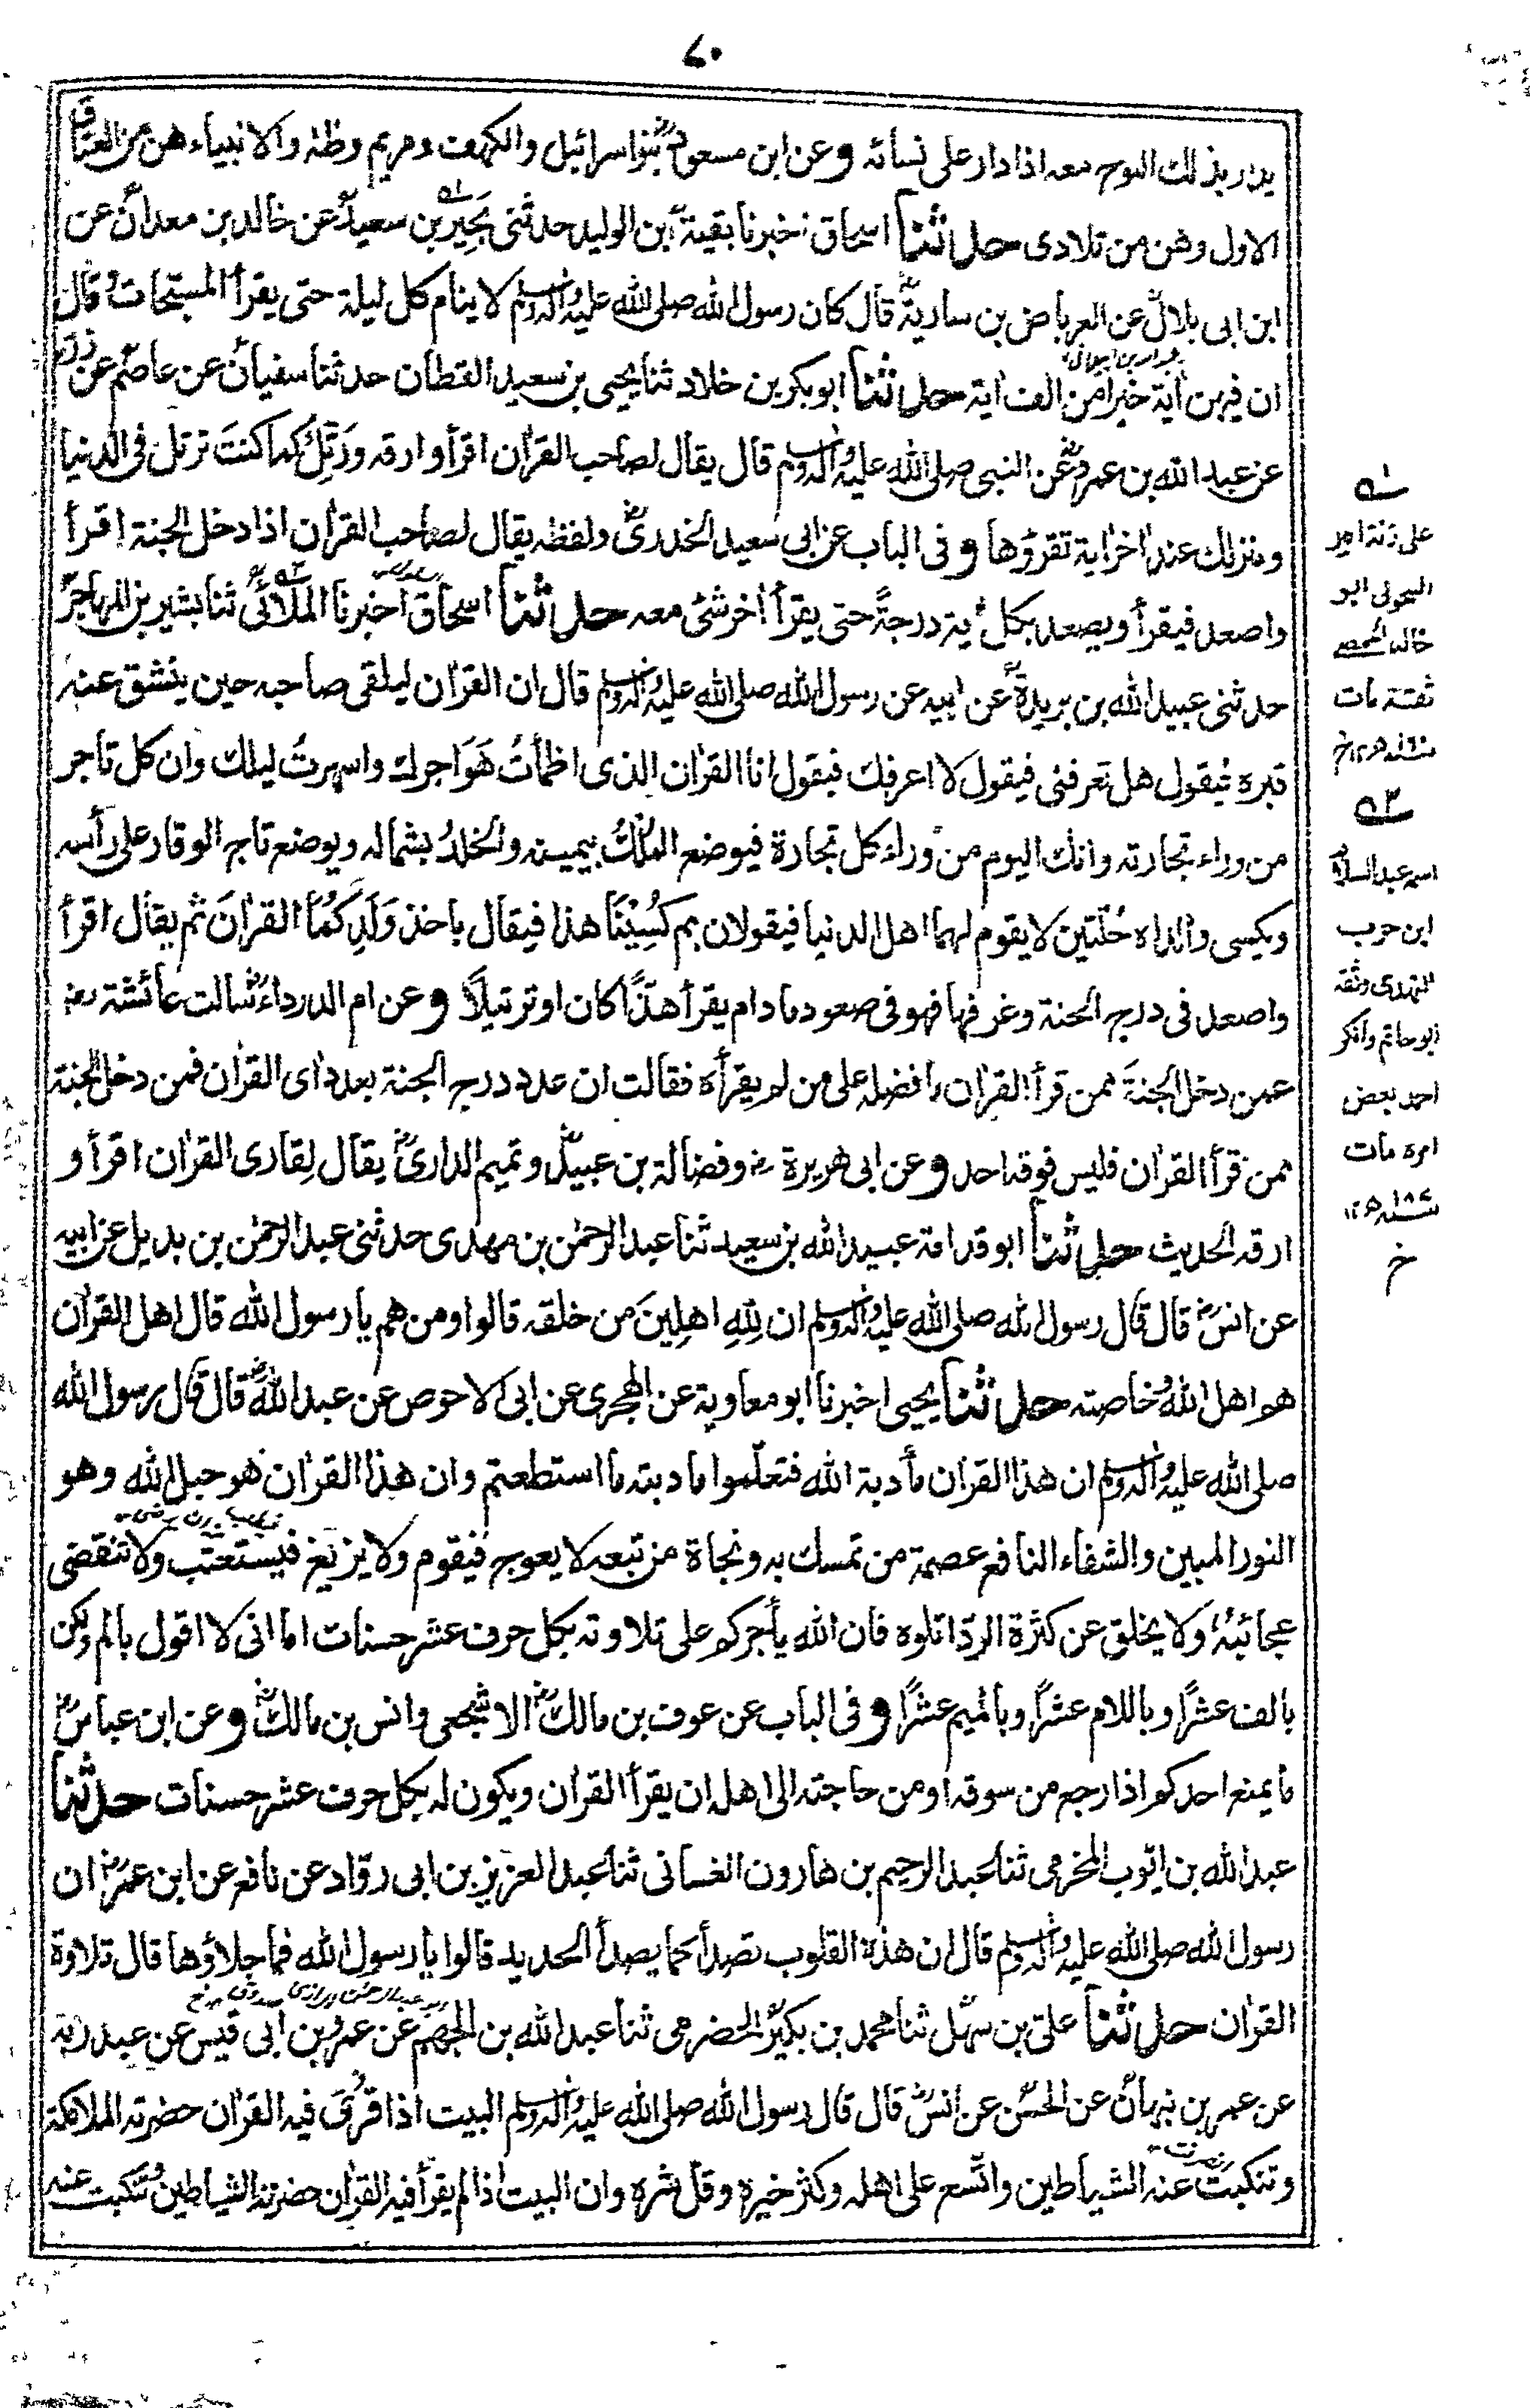 ٧٠
يدار بذلك اليوم معه اذا دار على نسائه وعن ابن مسعود بنواسرائيل والكهف ومريم وطه والانبياء هن من العتاق
الاول وهن من تلادى حدثنا اسحاق اخبرنا بقية ابن الوليد حدثنى بَحِير بن سعيد عن خالد بن معدان عن
ابن ابى بلال عن العرباض بن سارية قال كان رسول الله صلى الله عليه واله وسلم لا ينام كل ليلة حتى يقرأ المسبحات وقال
ان فيهن اٰية خير من الف اٰية حدثنا ابو بكر بن خلاد ثنا يحيى بن سعيد القطان حدثنا سفيان عن عاصم عن زر
عن عبد الله بن عمرو عن النبى صلى الله عليه واله وسلم قال يقال لصاحب القراٰن اقرأ وارقه ورَتِّلْ كما كنتَ ترتل فى الدنيا
ومنزلك عند اٰخر اٰية تقرؤها وفى الباب عن ابى سعيد الخدرى ولفظه يقال لصاحب القراٰن اذا دخل الجنة اقرأ
واصعد فيقرأ ويصعد بكل اٰية درجةً حتى يقرأ اٰخر شئى معه حدثنا اسحاق اخبرنا الملائى ثنا بشير بن المهاجر
حدثنى عبيد الله بن بريدة عن ابيه عن رسول الله صلى الله عليه واله وسلم قال ان القراٰن ليلقى صاحبه حين ينشق عنه
قبره فيقول هل تعرفنى فيقول لا اعرفك فيقول انا القراٰن الذى اظمأتُ هَوَاجرك واسهرتُ ليلك وان كل تاجر
من وراء تجارته وانك اليوم من وراء كل تجارة فيوضع المُلْكُ بيمينه والخلدُ بشماله ويوضع تاج الوقار على رأسه
ويكسى والداه حُلّتين لا يقوم لهما اهل الدنيا فيقولان بم كُسِيْنَا هذا فيقال باخذ وَلَدِكُمَا القراٰنَ ثم يقال اقرأ
واصعد فى درج الجنة وغرفها فهو فى صعود مادام يقرأ هذًّا كان او ترتيلًا وعن ام الدرداء سالت عائشة
عمن دخل الجنةَ ممن قرأ القراٰن ما فضله على من لم يقرأه فقالت ان عدد درج الجنة بعدد اى القراٰن فمن دخل الجنة
ممن قرأ القراٰن فليس فوقه احد وعن ابى هريرة وفضالة بن عبيد وتميم الدارى يقال لِقارى القراٰن اقرأ و
ارقه الحديث حدثنا ابو قدامة عبيد الله بن سعيد ثنا عبد الرحمٰن بن مهدى حدثنى عبد الرحمٰن بن بديل عن ابيه
عن انس قال قال رسول الله صلى الله عليه واله وسلم ان لِلّٰهِ اهلِينَ من خلقه قالوا ومن هم يا رسول الله قال اهل القراٰن
هم اهل الله وخاصته حدثنا يحيى اخبرنا ابو معاوية عن الهجرى عن ابى الاحوص عن عبد الله قال قال رسول الله
صلى الله عليه واله وسلم ان هذا القراٰن مأدبة الله فتعلّموا مادبته ما استطعتم وان هذا القراٰن هو حبل الله وهو
النور المبين والشفاء النافع عصمة من تمسك به ونجاة من تبعه لا يعوج فيقوم ولا يزيغ فيستعتب ولا تنقضى
عجائبُهُ ولا يخلق عن كثرة الردّ اتلوه فان الله يأجركم على تلاوته بكل حرف عشر حسنات اما انى لا اقول بالم ولكن
بالف عشرًا وباللام عشرًا وبالميم عشرًا وفى الباب عن عوف بن مالك الاشجعى وانس بن مالك وعن ابن عباس
ما يمنع احدكم اذا رجع من سوقه او من حاجته الى اهله ان يقرأ القراٰن ويكون له بكل حرف عشر حسنات حدثنا
عبد الله بن ايّوب المخرمى ثنا عبد الرحيم بن هارون الغسانى ثنا عبد العزيز بن ابى روّاد عن نافع عن ابن عمر ان
رسول الله صلى الله عليه واله وسلم قال ان هذه القلوب تصدأ كما يصدأ الحديد قالوا يا رسول الله فما جلاؤها قال تلاوة
القراٰن حدثنا على بن سهل ثنا محمد بن بكير الحضرمى ثنا عبد الله بن الجهم عن عمرو بن ابى قيس عن عبد ربه
عن عمر بن نبهان عن الحسن عن انس قال قال رسول الله صلى الله عليه واله وسلم البيت اذا قرئى فيه القراٰن حضرته الملائكة
وتنكبت عنه الشياطين واتّسع على اهله وكثر خيره وقل شره وان البيت اذا لم يقرأ فيه القراٰن حضرته الشياطين وتنكبت عنه
على زنة امير
السحولى ابو
خالد الحمصى
ثقة مات
اسمه عبد السلام
ابن حرب
النهدى وثقه
ابو حاتم وانكر
احمد بعض
امره مات